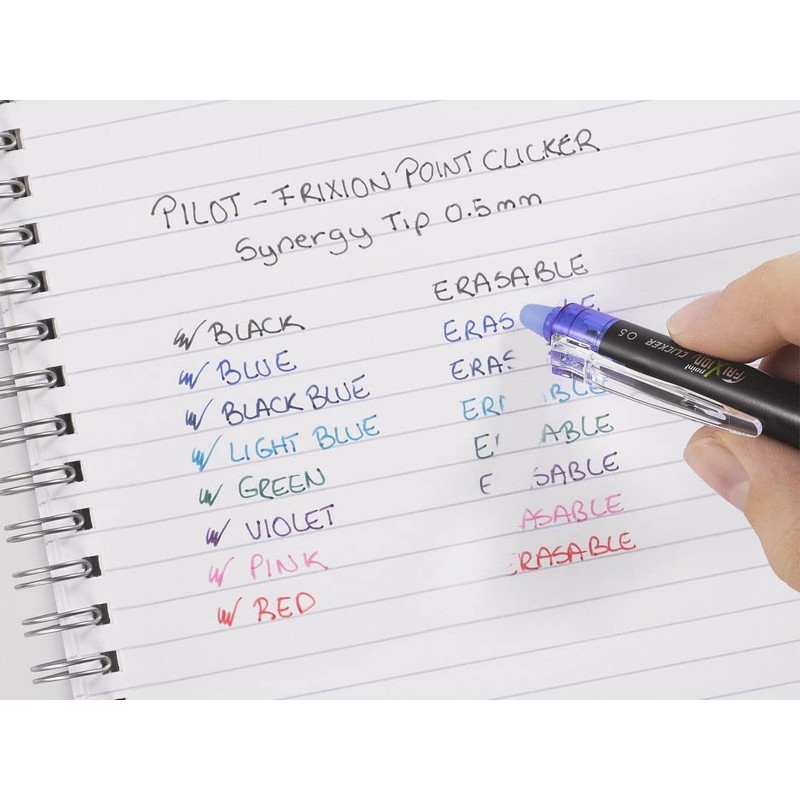 PILOT - FRIXION POINT CLICKER
Synergy Tip 0.5mm
BLACK ERASABLE
BLUE ERAS LE
BLACK BLUE ERAS
LIGHT BLUE ER BLE
GREEN E ABLE
VIOLET E SABLE
PINK ASABLE
RED RASABLE
FRIXION point CLICKER 0.5